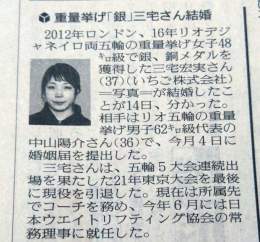 重量挙げ「銀」三宅さん結婚
2012年ロンドン、16年リオデジ
ャネイロ両五輪の重量挙げ女子48
㌔級で銀、銅メダルを
獲得した三宅宏実さん
(37)(いちご株式会社)
=写真=が結婚したこ
とが14日、分かった。
相手はリオ五輪の重量
挙げ男子62㌔級代表の
中山陽介さん(36)で、今月4日に
婚姻届を提出した。
三宅さんは、五輪5大会連続出
場を果たした21年東京大会を最後
に現役を引退した。現在は所属先
でコーチを務め、今年6月には日
本ウエイトリフティング協会の常
務理事に就任した。